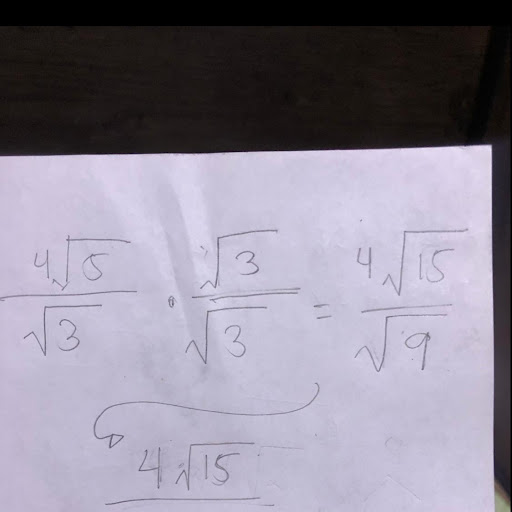 4√5/√3 · √3/√3 = 4√15/√9
4√15